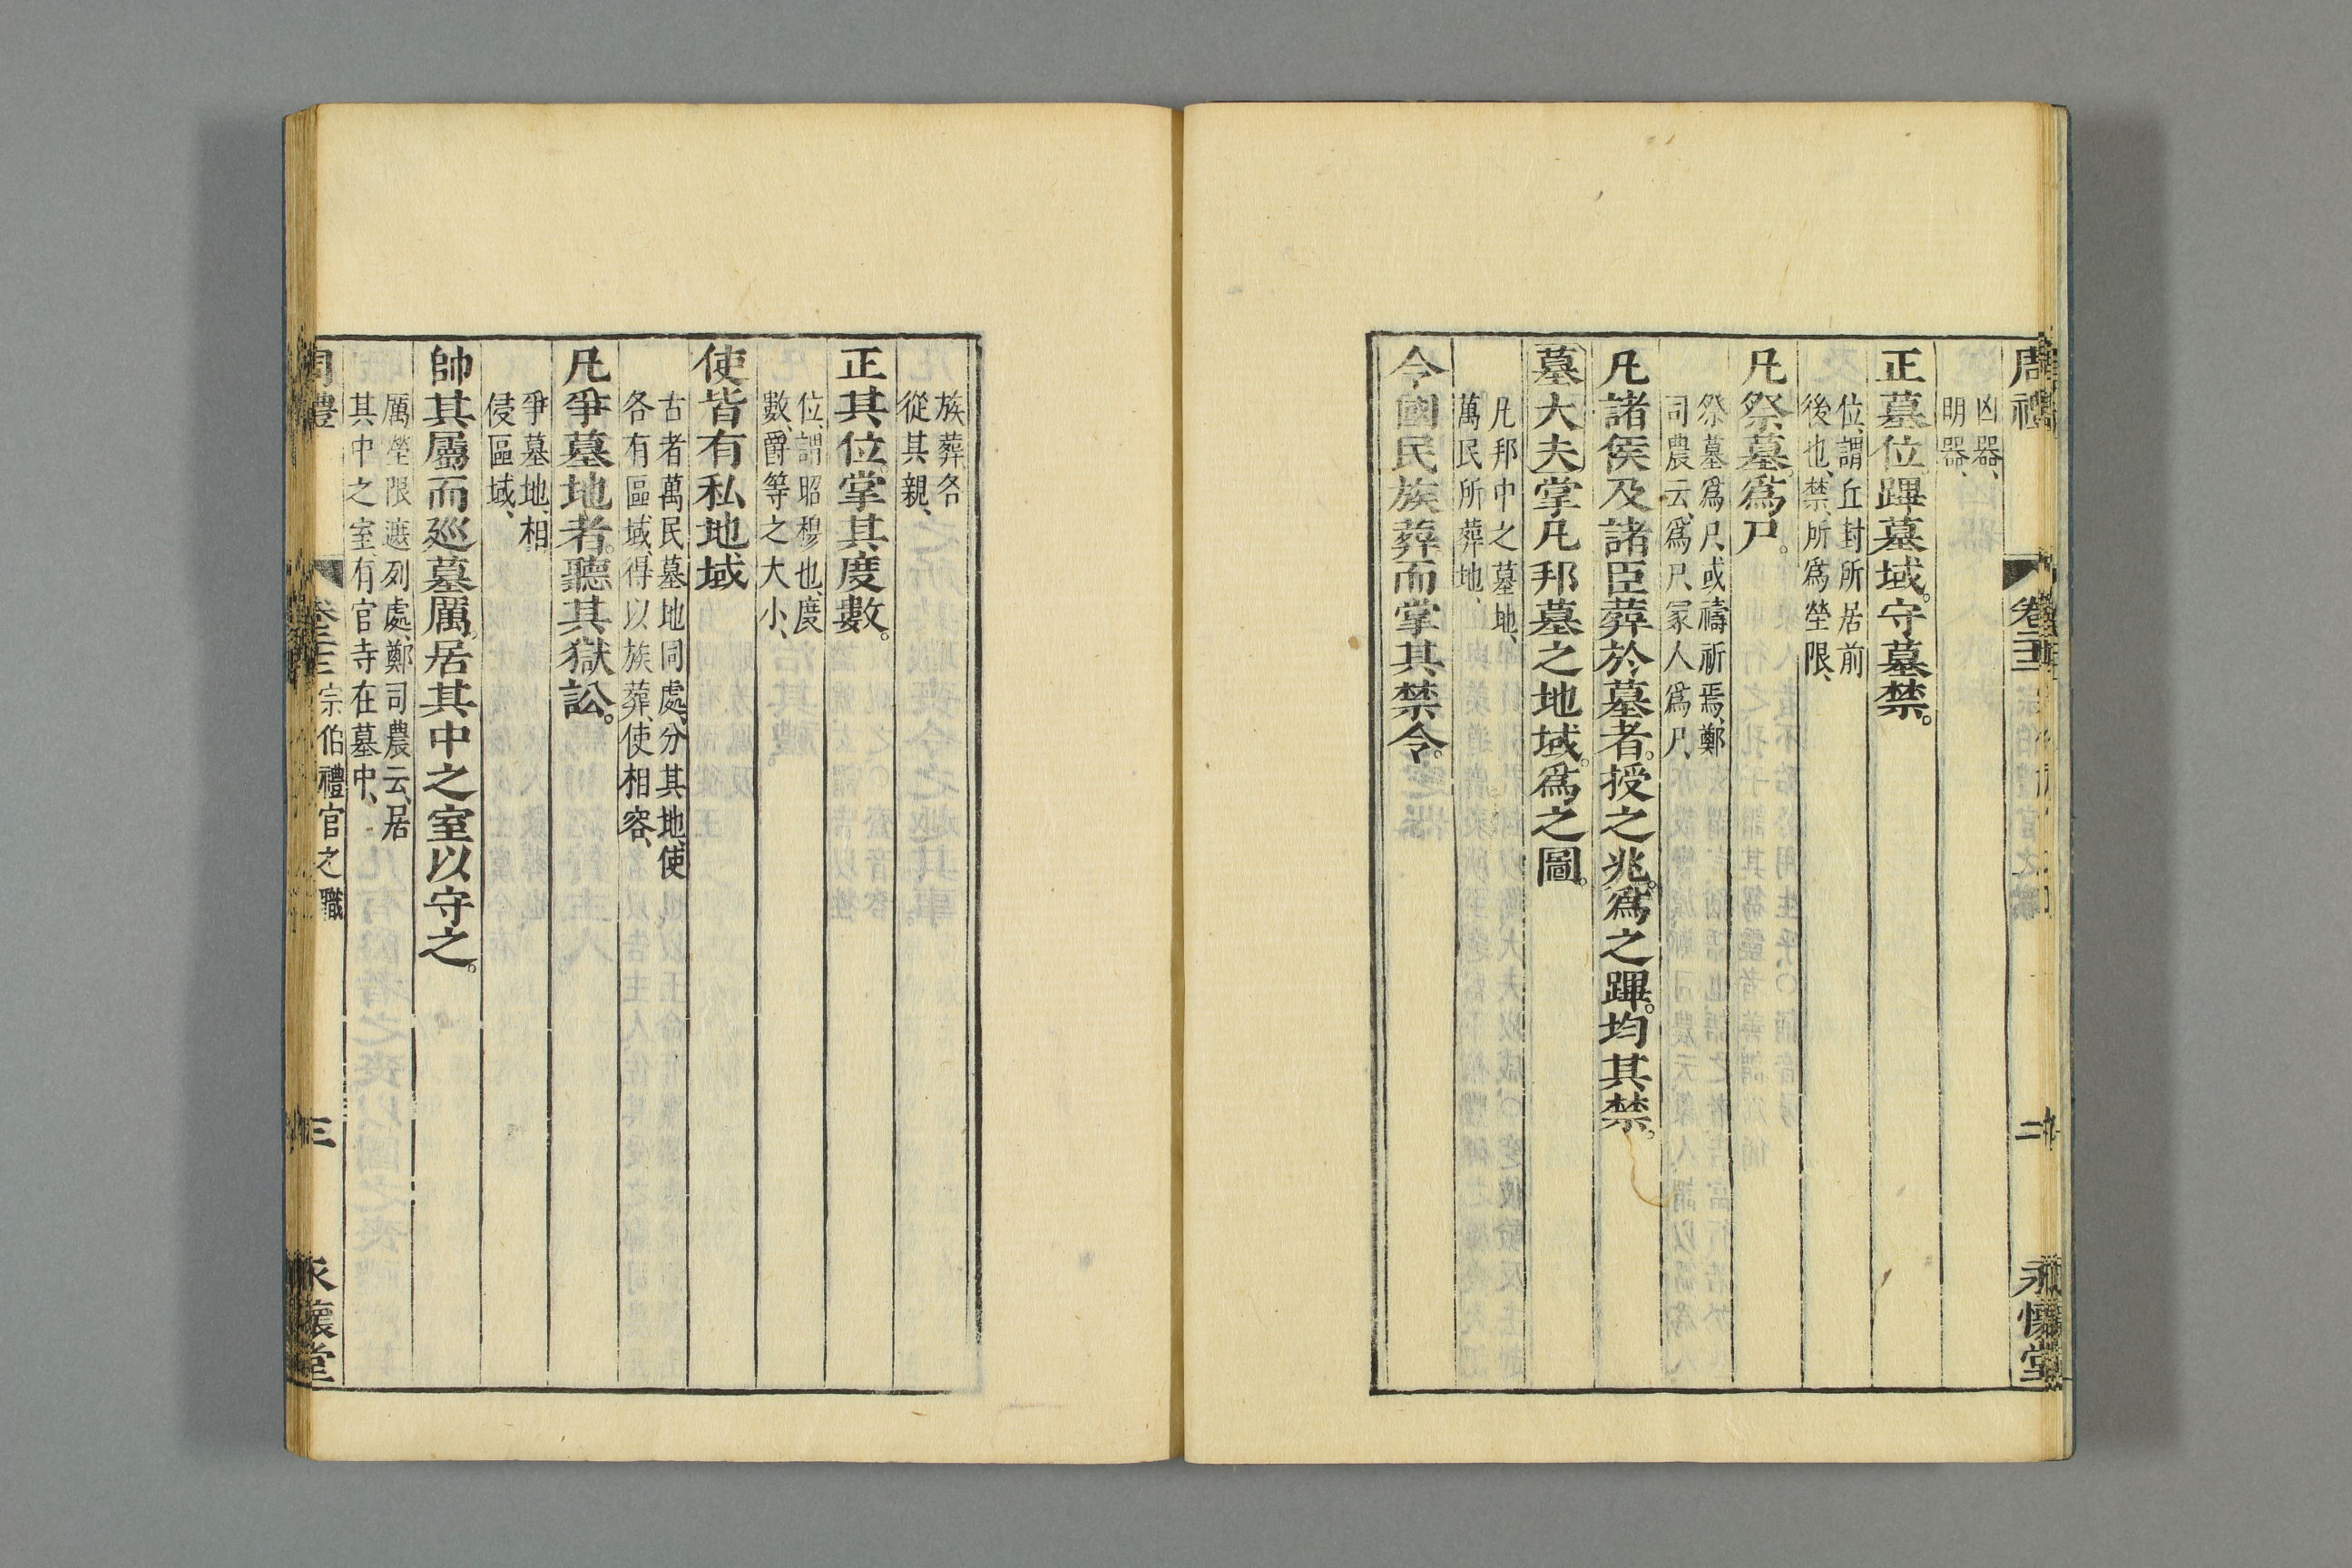 周禮 卷二十二 二 永懷堂
凶器、
明器、
正墓位。蹕墓域。守墓禁。
位、謂丘封所居前
後也、禁、所爲塋限、
凡祭墓。爲尸。
祭墓爲尸、或禱祈焉、鄭
司農云、爲尸、冢人爲尸、
凡諸侯及諸臣葬於墓者。授之兆。爲之蹕。均其禁。
墓大夫掌凡邦墓之地域。爲之圖。
凡邦中之墓地、
萬民所葬地、
令國民族葬而掌其禁令。
族葬、各
從其親、
正其位。掌其度數。
位、謂昭穆也、度
數、爵等之大小、
使皆有私地域
古者萬民墓地同處、分其地、使
各有區域、得以族葬、使相容、
凡爭墓地者。聽其獄訟。
爭墓地、相
侵區域、
帥其屬而巡墓厲。居其中之室以守之。
厲、塋限遮列處、鄭司農云、居
其中之室、有官寺在墓中、
周禮 卷二十二 宗伯禮官之職 三 永懷堂